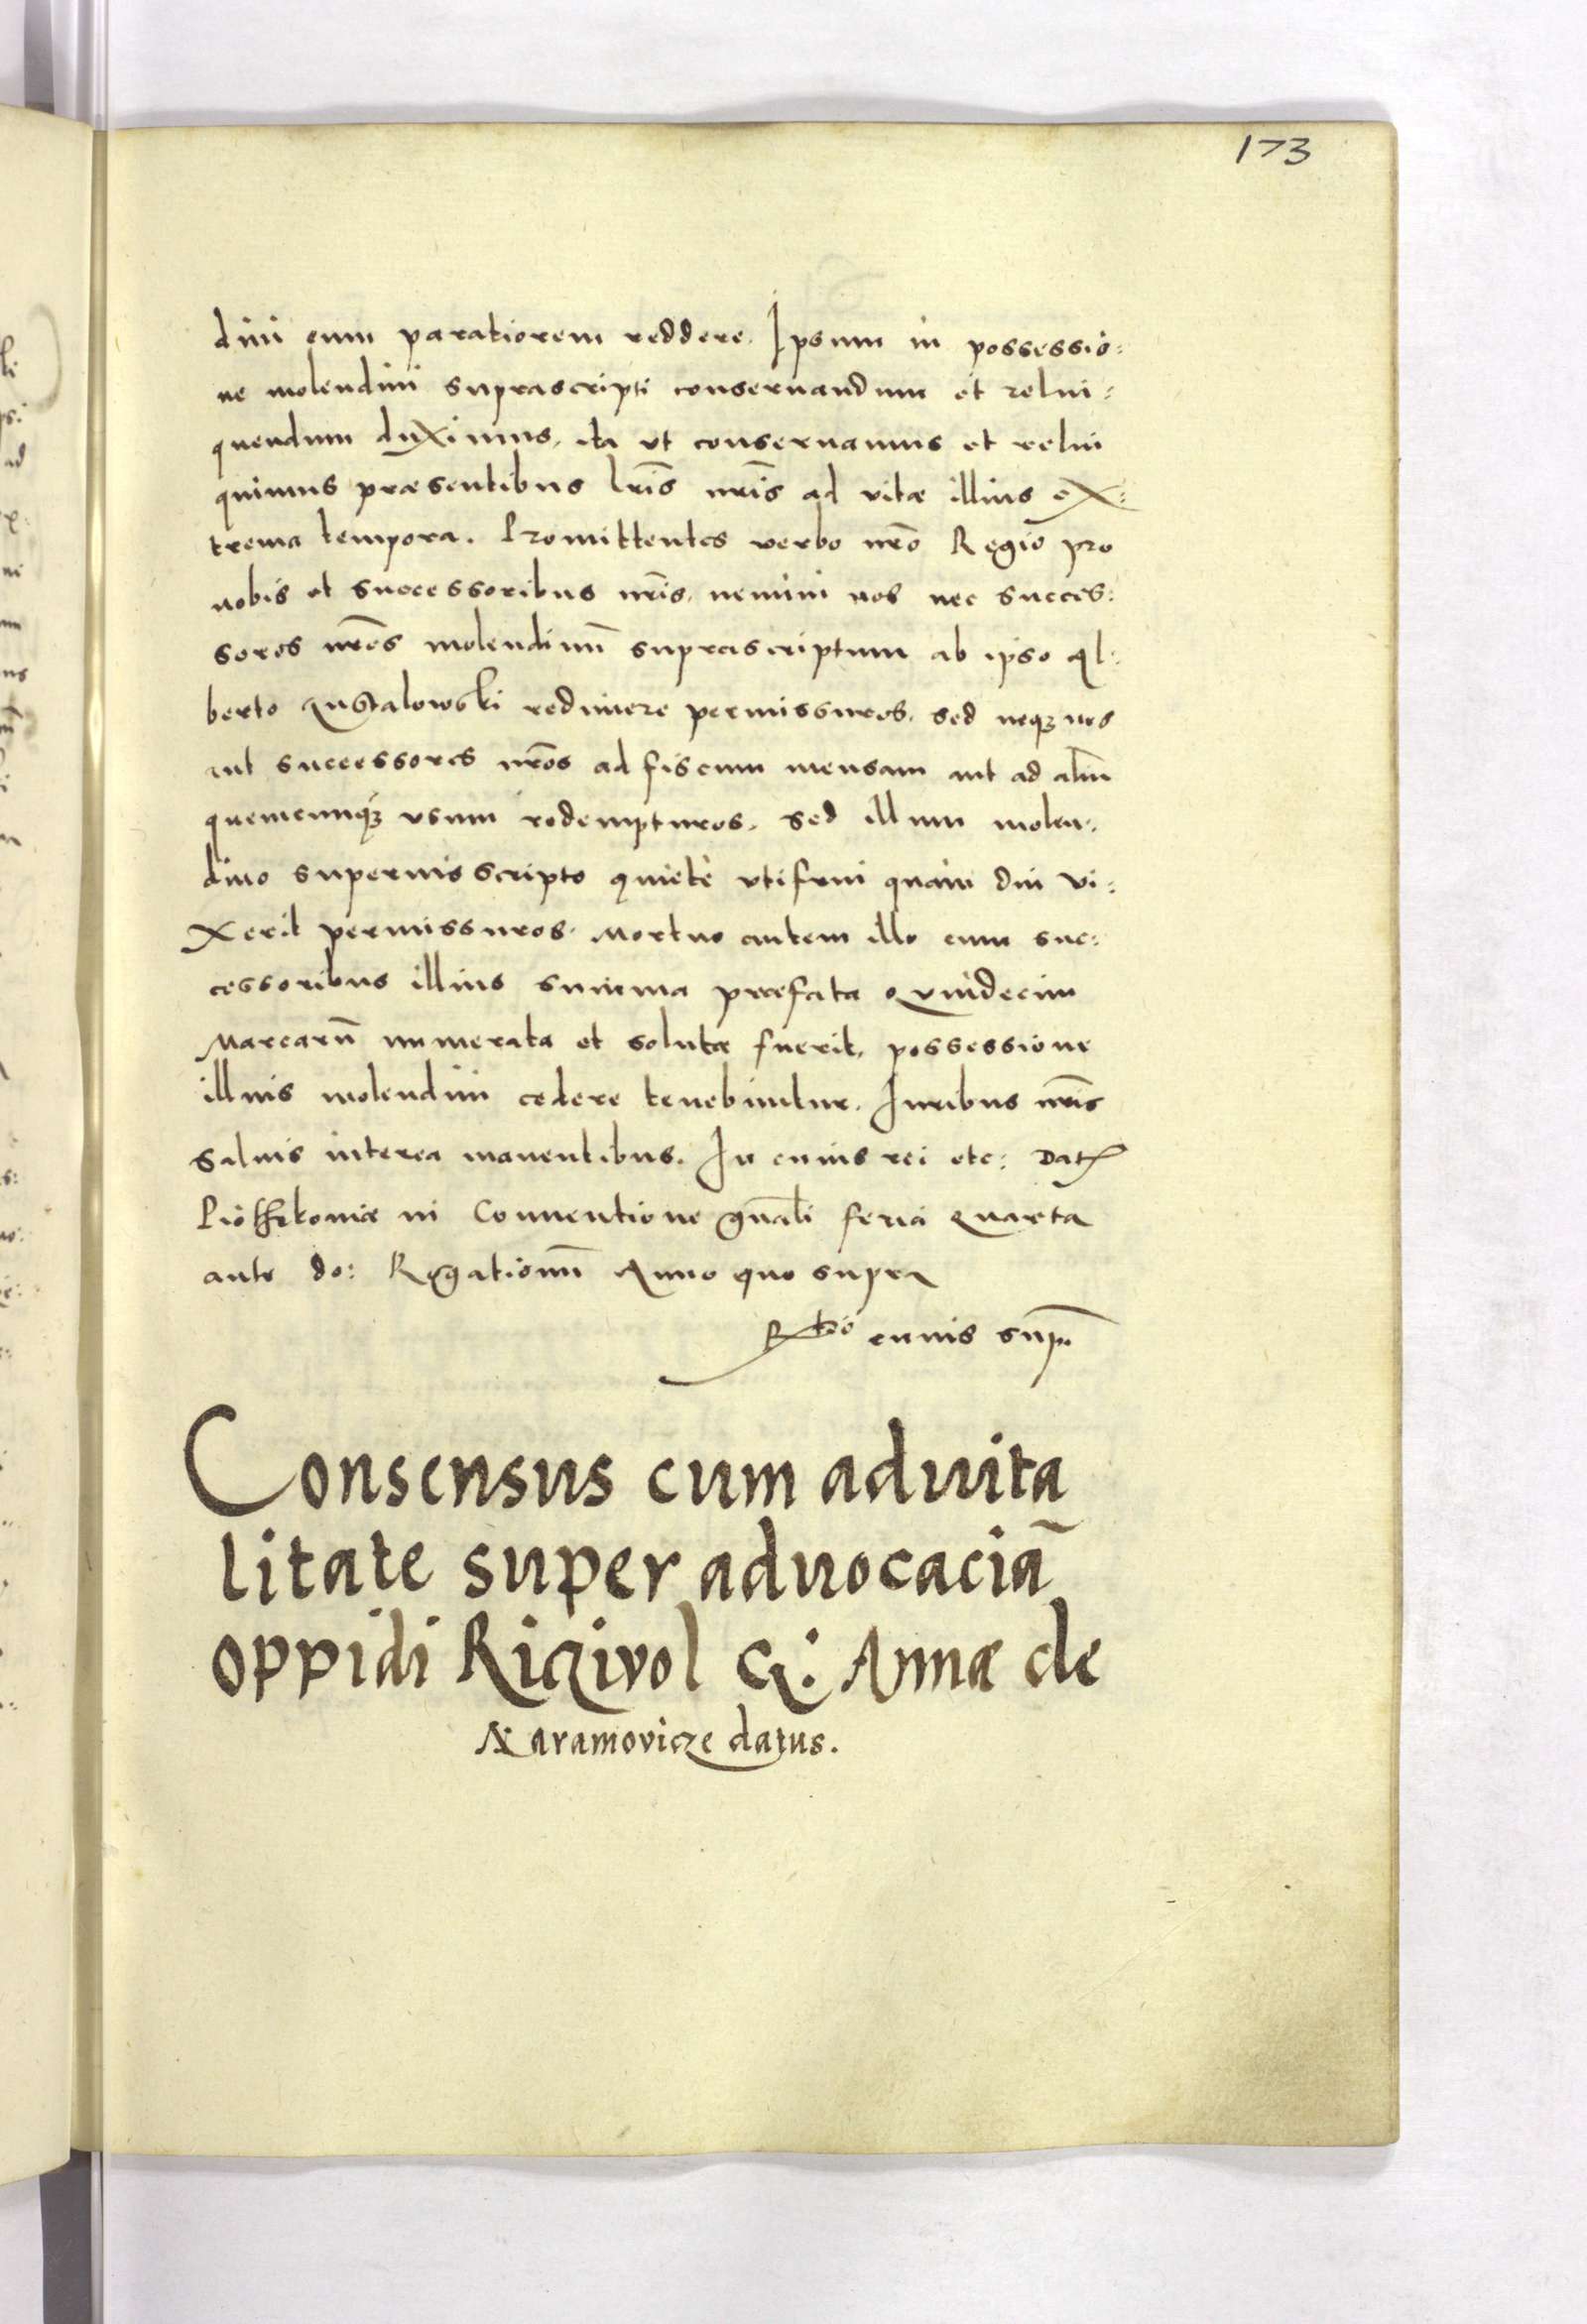 173
dini eum paratiorem reddere. Ipsum in possessio:
ne molendini suprascripti conseruandum et relin:
quendum duximus, ita ut conseruamus et relin
quimus præsentibus lr̃is nr̃is ad vitæ illius ex:
trema tempora. Promittentes verbo nr̃o Regio pro
nobis et successoribus nr̃is, nemini nos nec succes:
sores nr̃os molendinũ suprascriptum ab ipso Al:
berto redimere permissuros, sed neqꝫ nos
aut successores nr̃os ad fiscum mensam aut ad aliũ
quemcunqꝫ usum redempturos, sed illum molen:
dino superius scripto quietè utifrui quàm diu vi:
xerit permissuros. Mortuo autem illo cum suc:
cessoribus illius summa præfata quindecim
Marcarũ numerata et soluta fuerit, possessione
illius molendini cedere tenebuntur. Iuribus nr̃is
saluis interea manentibus. In cuius rei etc: Dat
Piothrkoviæ in Conuentione gñali feria quarta
ante do: Rogationũ Anno quo supra
Rtio cuius sup̃
Consensus cum aduita
litate super aduocaciã
oppidi Riczivol G: Annæ de
Naramovicze datus.